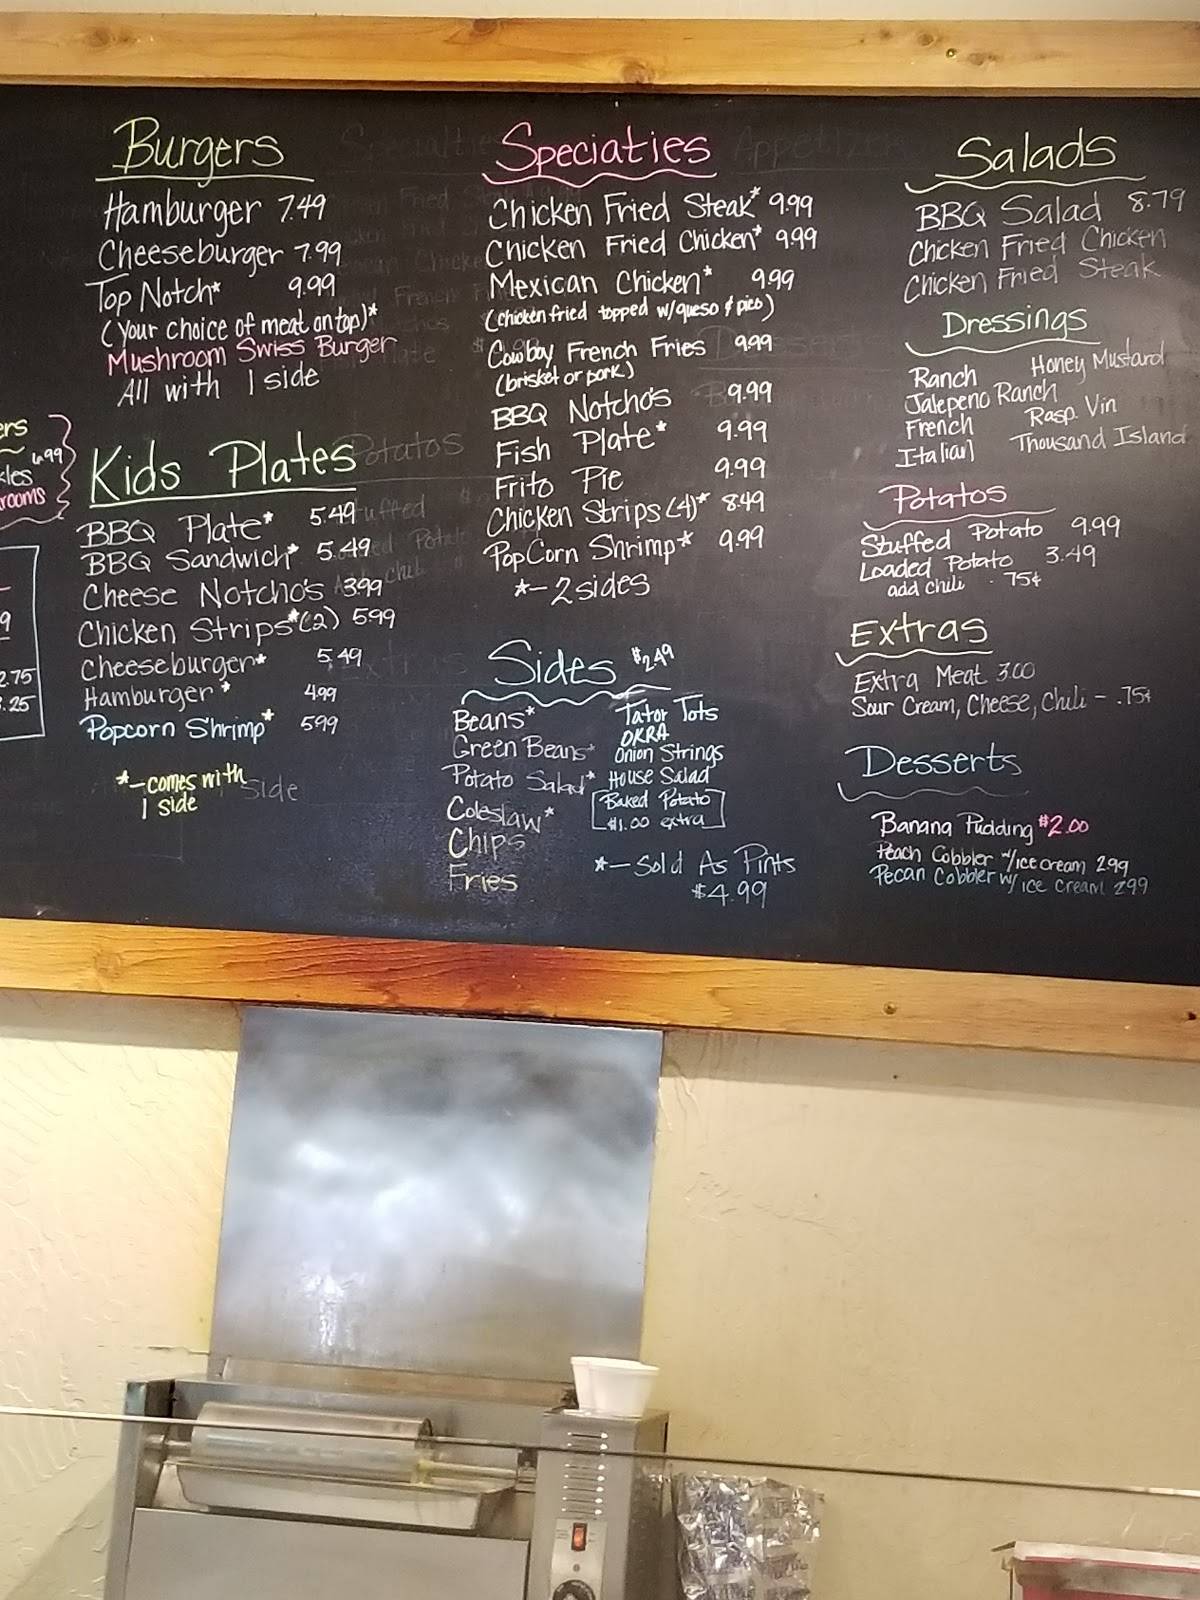 Burgers
Hamburger 7.49
Cheeseburger 7.99
Top Notch* 9.99
(Your choice of meat on top)*
Mushroom Swiss Burger
All with 1 side
Kids Plates
BBQ Plate* 5.49
BBQ Sandwich* 5.49
Cheese Notcho's 3.99
Chicken Strips*(2) 5.99
Cheeseburger* 5.49
Hamburger* 4.99
Popcorn Shrimp* 5.99
*-comes with side
1 side
ers
6.99
kles
rooms
9
2.75
.25
Speciaties
Chicken Fried Steak* 9.99
Chicken Fried Chicken* 9.99
Mexican Chicken* 9.99
(chicken fried topped w/queso & pico)
Cowboy French Fries 9.99
(brisket or pork)
BBQ Notcho's 9.99
Fish Plate* 9.99
Frito Pie 9.99
Chicken Strips (4)* 8.49
PopCorn Shrimp* 9.99
*-2 sides
Sides $2.49
Beans*
Green Beans*
Potato Salad*
Coleslaw*
Chips
Fries
Tator Tots
OKRA
Onion Strings
House Salad
Baked Potato
$1.00 extra
*-Sold As Pints
$4.99
Salads
BBQ Salad 8.79
Chicken Fried Chicken
Chicken Fried Steak
Dressings
Ranch
Jalepeno Ranch
French
Italian
Honey Mustard
Rasp. Vin
Thousand Island
Potatos
Stuffed Potato 9.99
Loaded Potato 3.49
add chili .75¢
Extras
Extra Meat 3.00
Sour Cream, Cheese, Chili - .75¢
Desserts
Banana Pudding $2.00
Peach Cobbler w/ice cream 2.99
Pecan Cobbler w/ ice cream 2.99